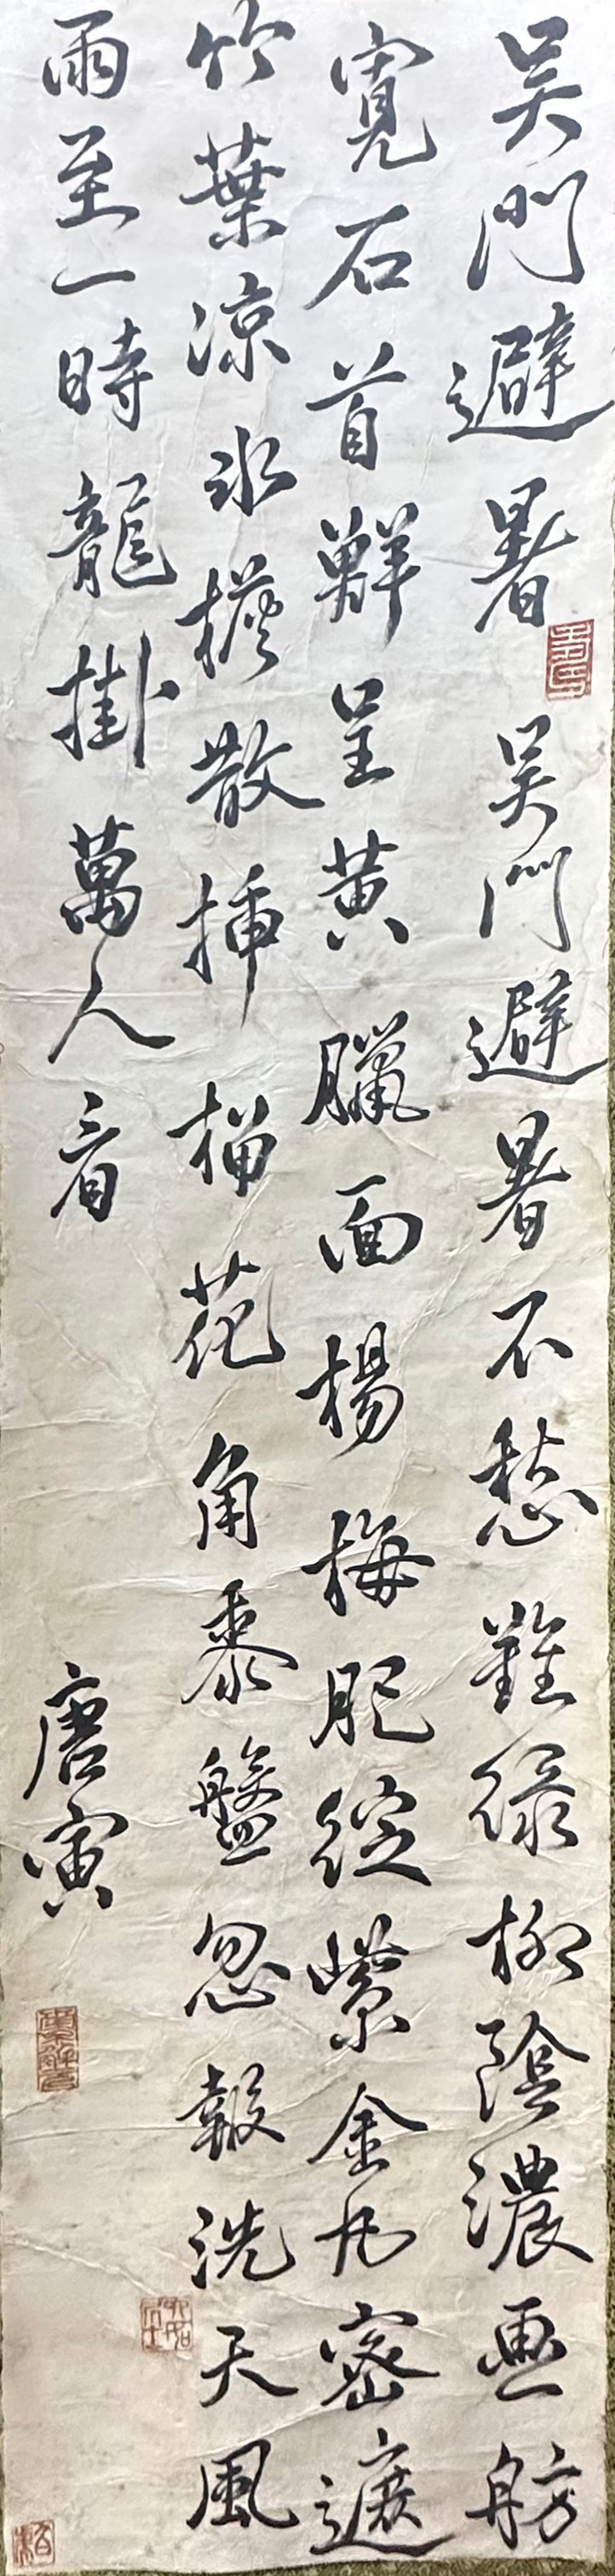 吳門避暑 吳門避暑不愁難綠柳陰濃畫舫
寬石首鮮呈黃臘面楊梅肥綻紫金丸密遮
竹葉涼冰檐散插榴花角黍盤忽報洗天風
雨至一時龍掛萬人看
唐寅